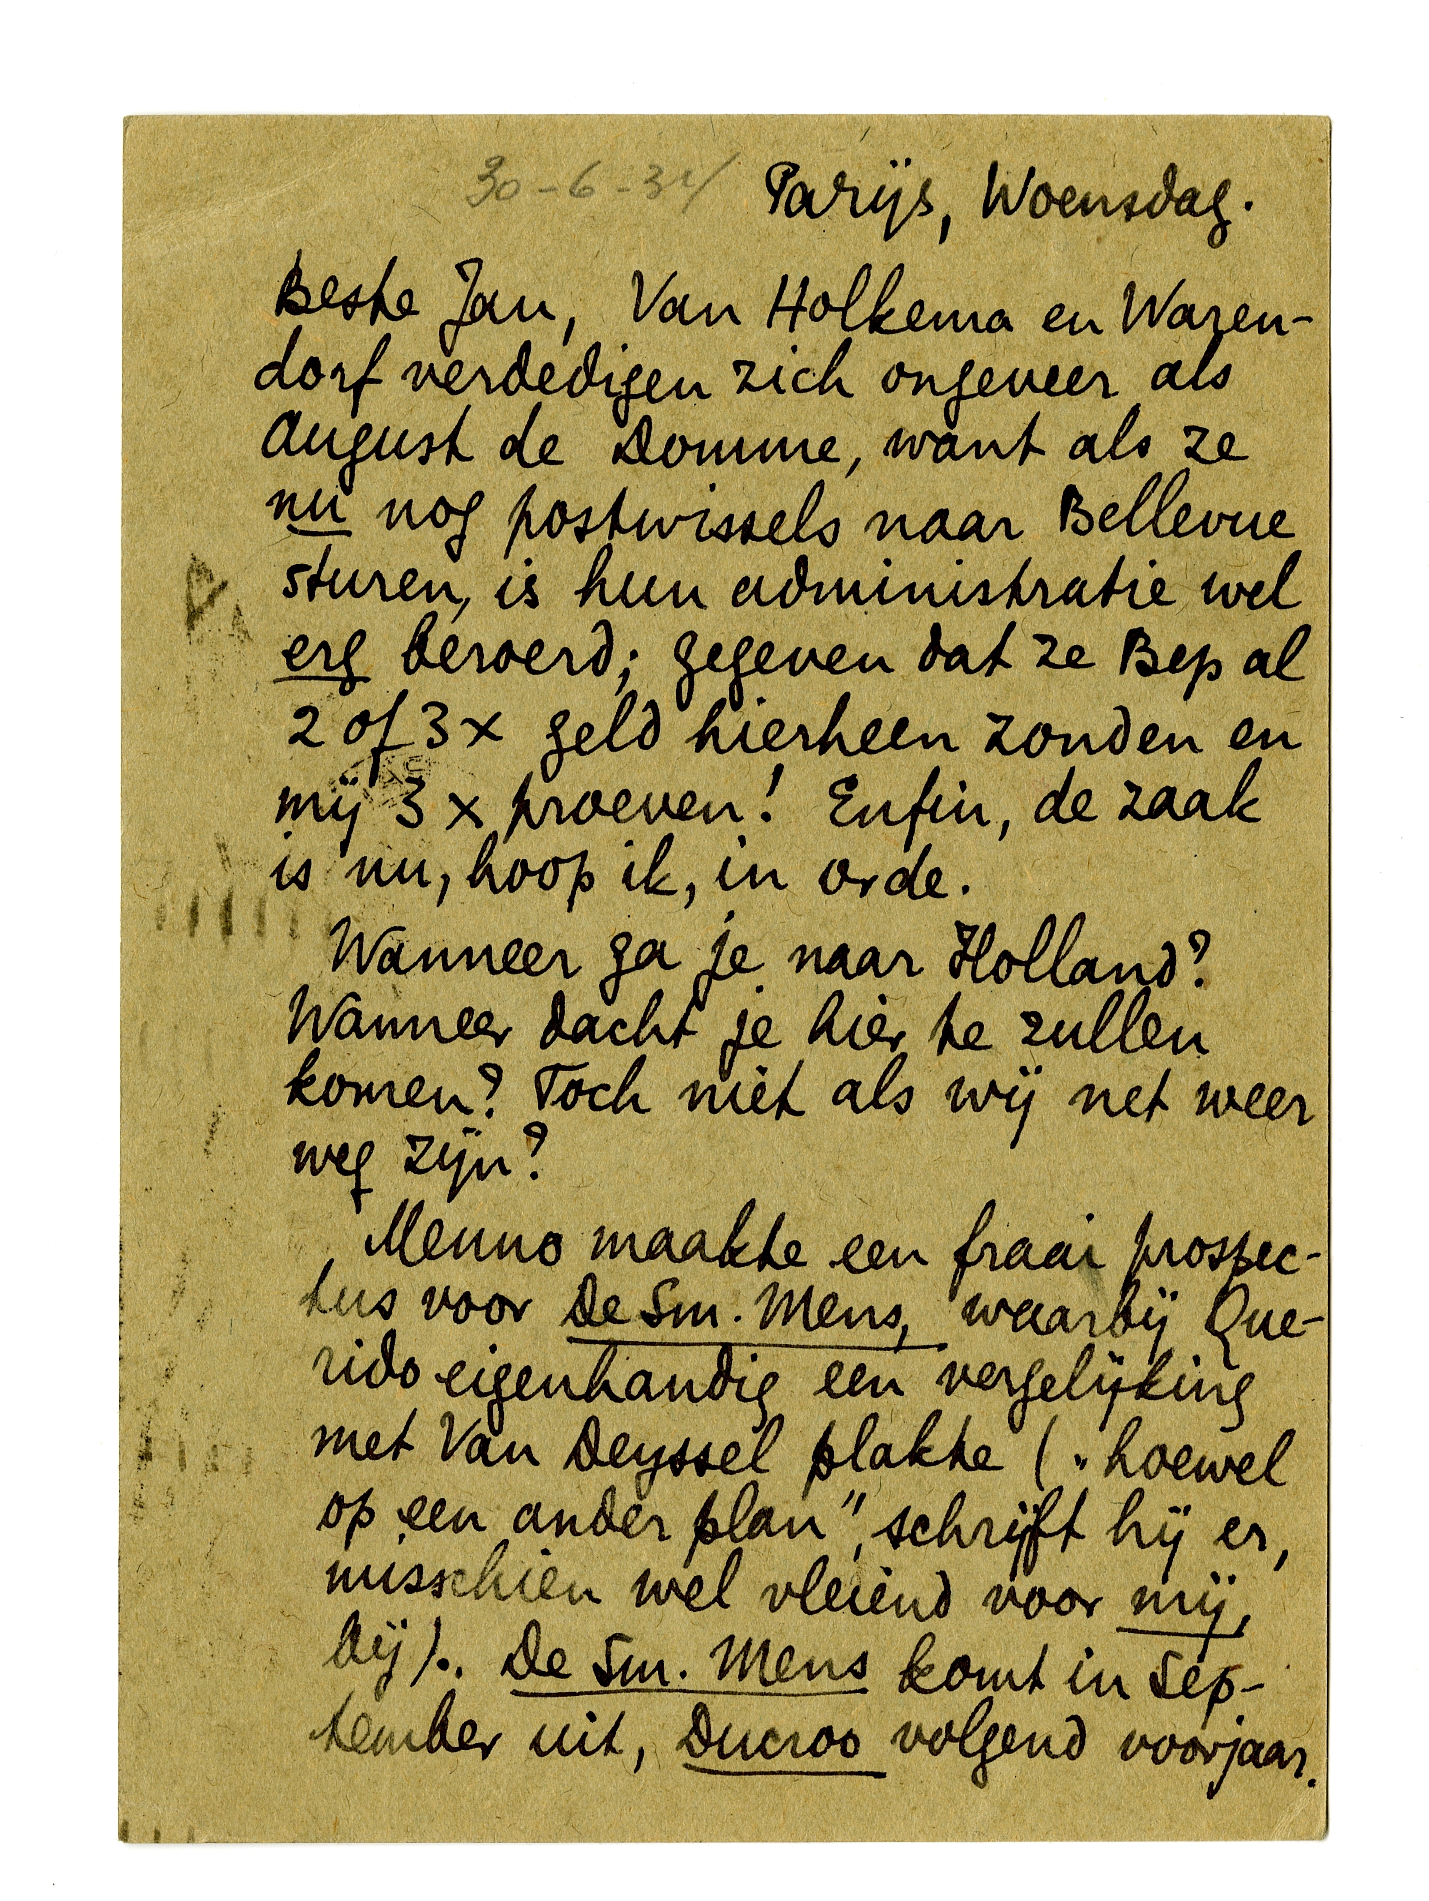 30-6-34
Parijs, Woensdag.
Beste Jan, Van Holkema en Waren-
dorf verdedigen zich ongeveer als
August de Domme, want als ze
nu nog postwissels naar Bellevue
sturen, is hun administratie wel
erg beroerd; gegeven dat ze Bep al
2 of 3 x geld hierheen zonden en
mij 3 x proeven! Enfin, de zaak
is nu, hoop ik, in orde.
Wanneer ga je naar Holland?
Wanneer dacht je hier te zullen
komen? Toch niet als wij net weer
weg zijn?
Menno maakte een fraai prospec-
tus voor De Sm. Mens, waarbij Que-
rido eigenhandig een vergelijking
met Van Deyssel plakte („hoewel
op een ander plan", schrijft hij er,
misschien wel vleiend voor mij,
bij).. De Sm. Mens komt in Sep-
tember uit, Ducroo volgend voorjaar.